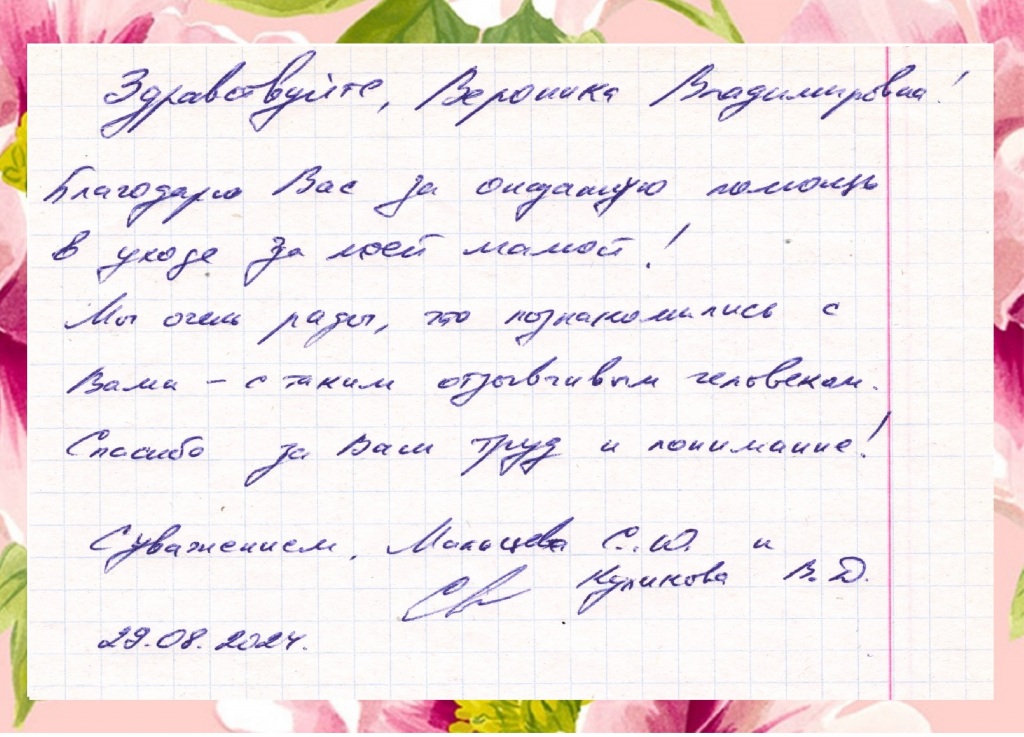 Здравствуйте, Вероника Владимировна!
Благодарю Вас за оказанную помощь
в уходе за моей мамой!
Мы очень рады, что познакомились с
Вами – с таким отзывчивым человеком.
Спасибо за Ваш труд и понимание!
С уважением, Мальцева С.Ю. и
Куликова В.Д.
29.08.2024.